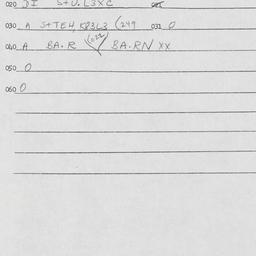 020 DI S+U.L3XC 021
030 A S+TEH, K83L3 (249 031 0
040 A BA.R (022 BA.RN XX
050 0
060 0